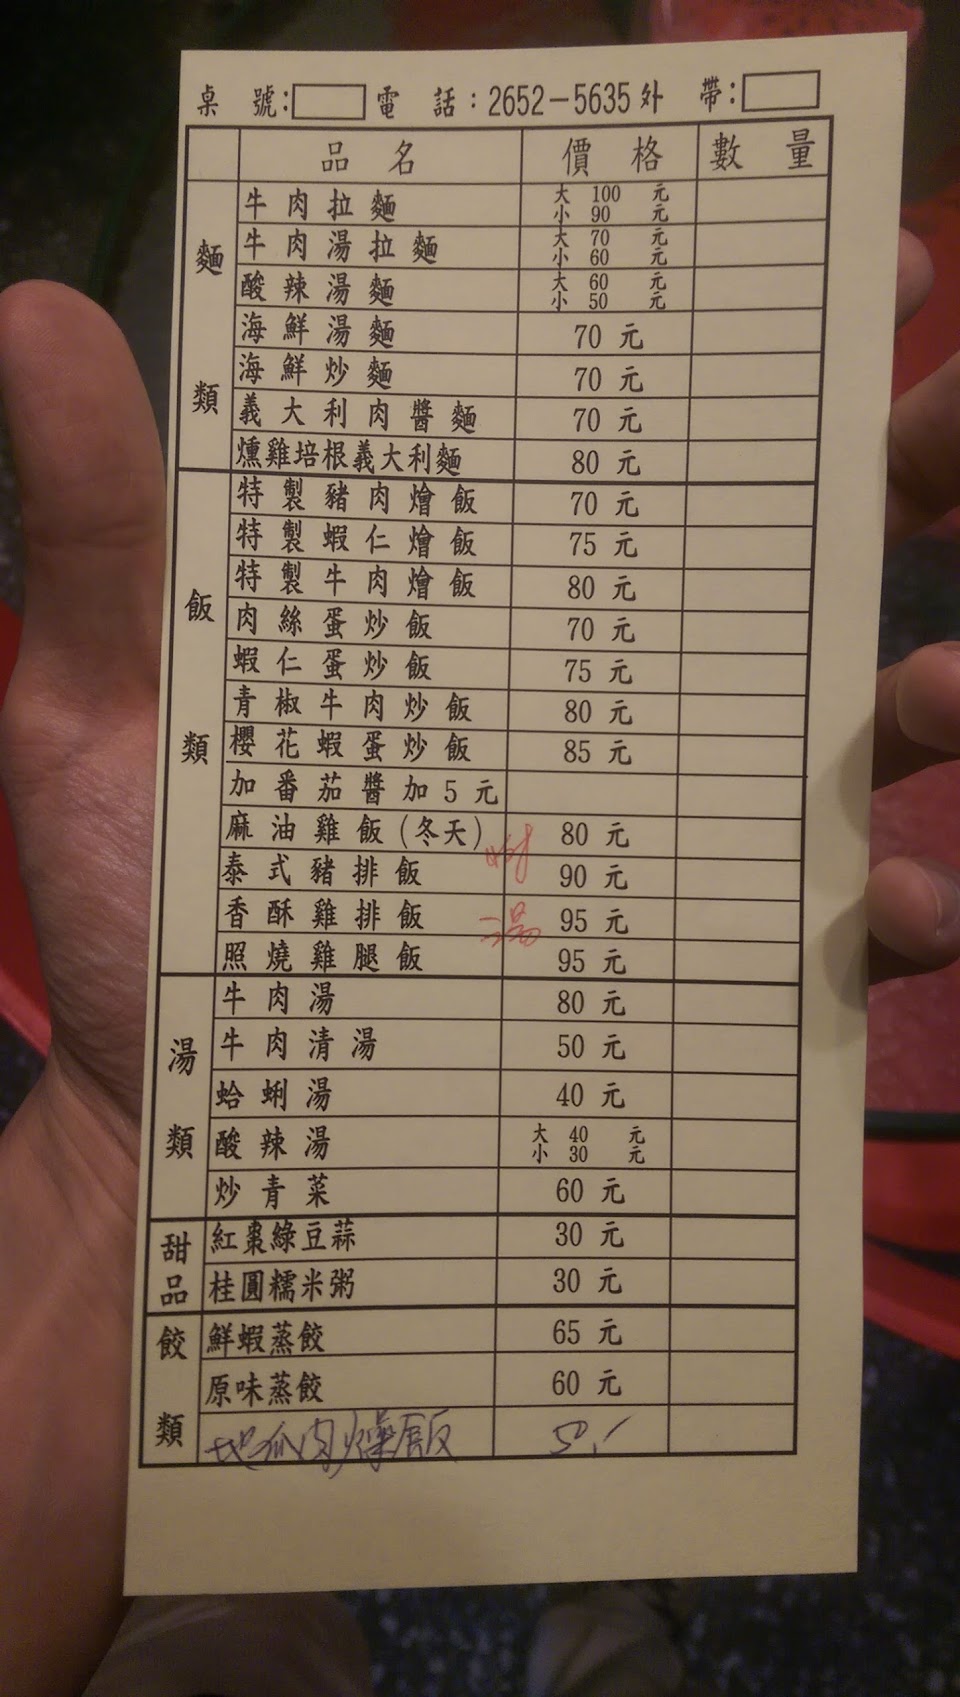 桌 號: 電 話：2652－5635 外 帶:
品 名 價 格 數 量
麵 類
牛肉拉麵 大 100 元 小 90 元
牛肉湯拉麵 大 70 元 小 60 元
酸辣湯麵 大 60 元 小 50 元
海鮮湯麵 70 元
海鮮炒麵 70 元
義大利肉醬麵 70 元
燻雞培根義大利麵 80 元
飯 類
特製豬肉燴飯 70 元
特製蝦仁燴飯 75 元
特製牛肉燴飯 80 元
肉絲蛋炒飯 70 元
蝦仁蛋炒飯 75 元
青椒牛肉炒飯 80 元
櫻花蝦蛋炒飯 85 元
加番茄醬加5元
麻油雞飯(冬天) 80 元
泰式豬排飯 90 元
香酥雞排飯 95 元
照燒雞腿飯 95 元
附湯
湯 類
牛肉湯 80 元
牛肉清湯 50 元
蛤蜊湯 40 元
酸辣湯 大 40 元 小 30 元
炒青菜 60 元
甜品
紅棗綠豆蒜 30 元
桂圓糯米粥 30 元
餃 類
鮮蝦蒸餃 65 元
原味蒸餃 60 元
地瓜肉燥飯 50.-